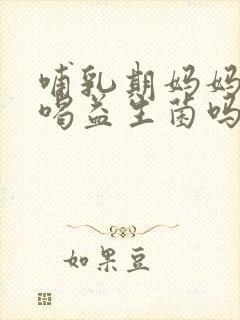 哺乳期妈妈
喝益生菌吗
如果豆